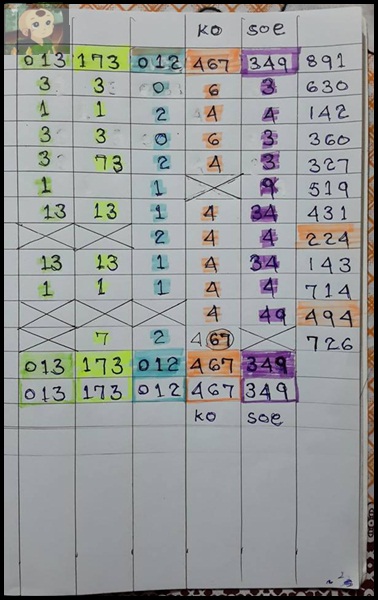 ko soe
013 173 012 467 349 891
3 3 0 6 3 630
1 1 2 4 4 142
3 3 0 6 3 360
3 73 2 4 3 327
1 1 9 519
13 13 1 4 34 431
2 4 4 224
13 13 1 4 34 143
1 1 1 4 4 714
4 49 494
7 2 467 726
013 173 012 467 349
013 173 012 467 349
ko soe